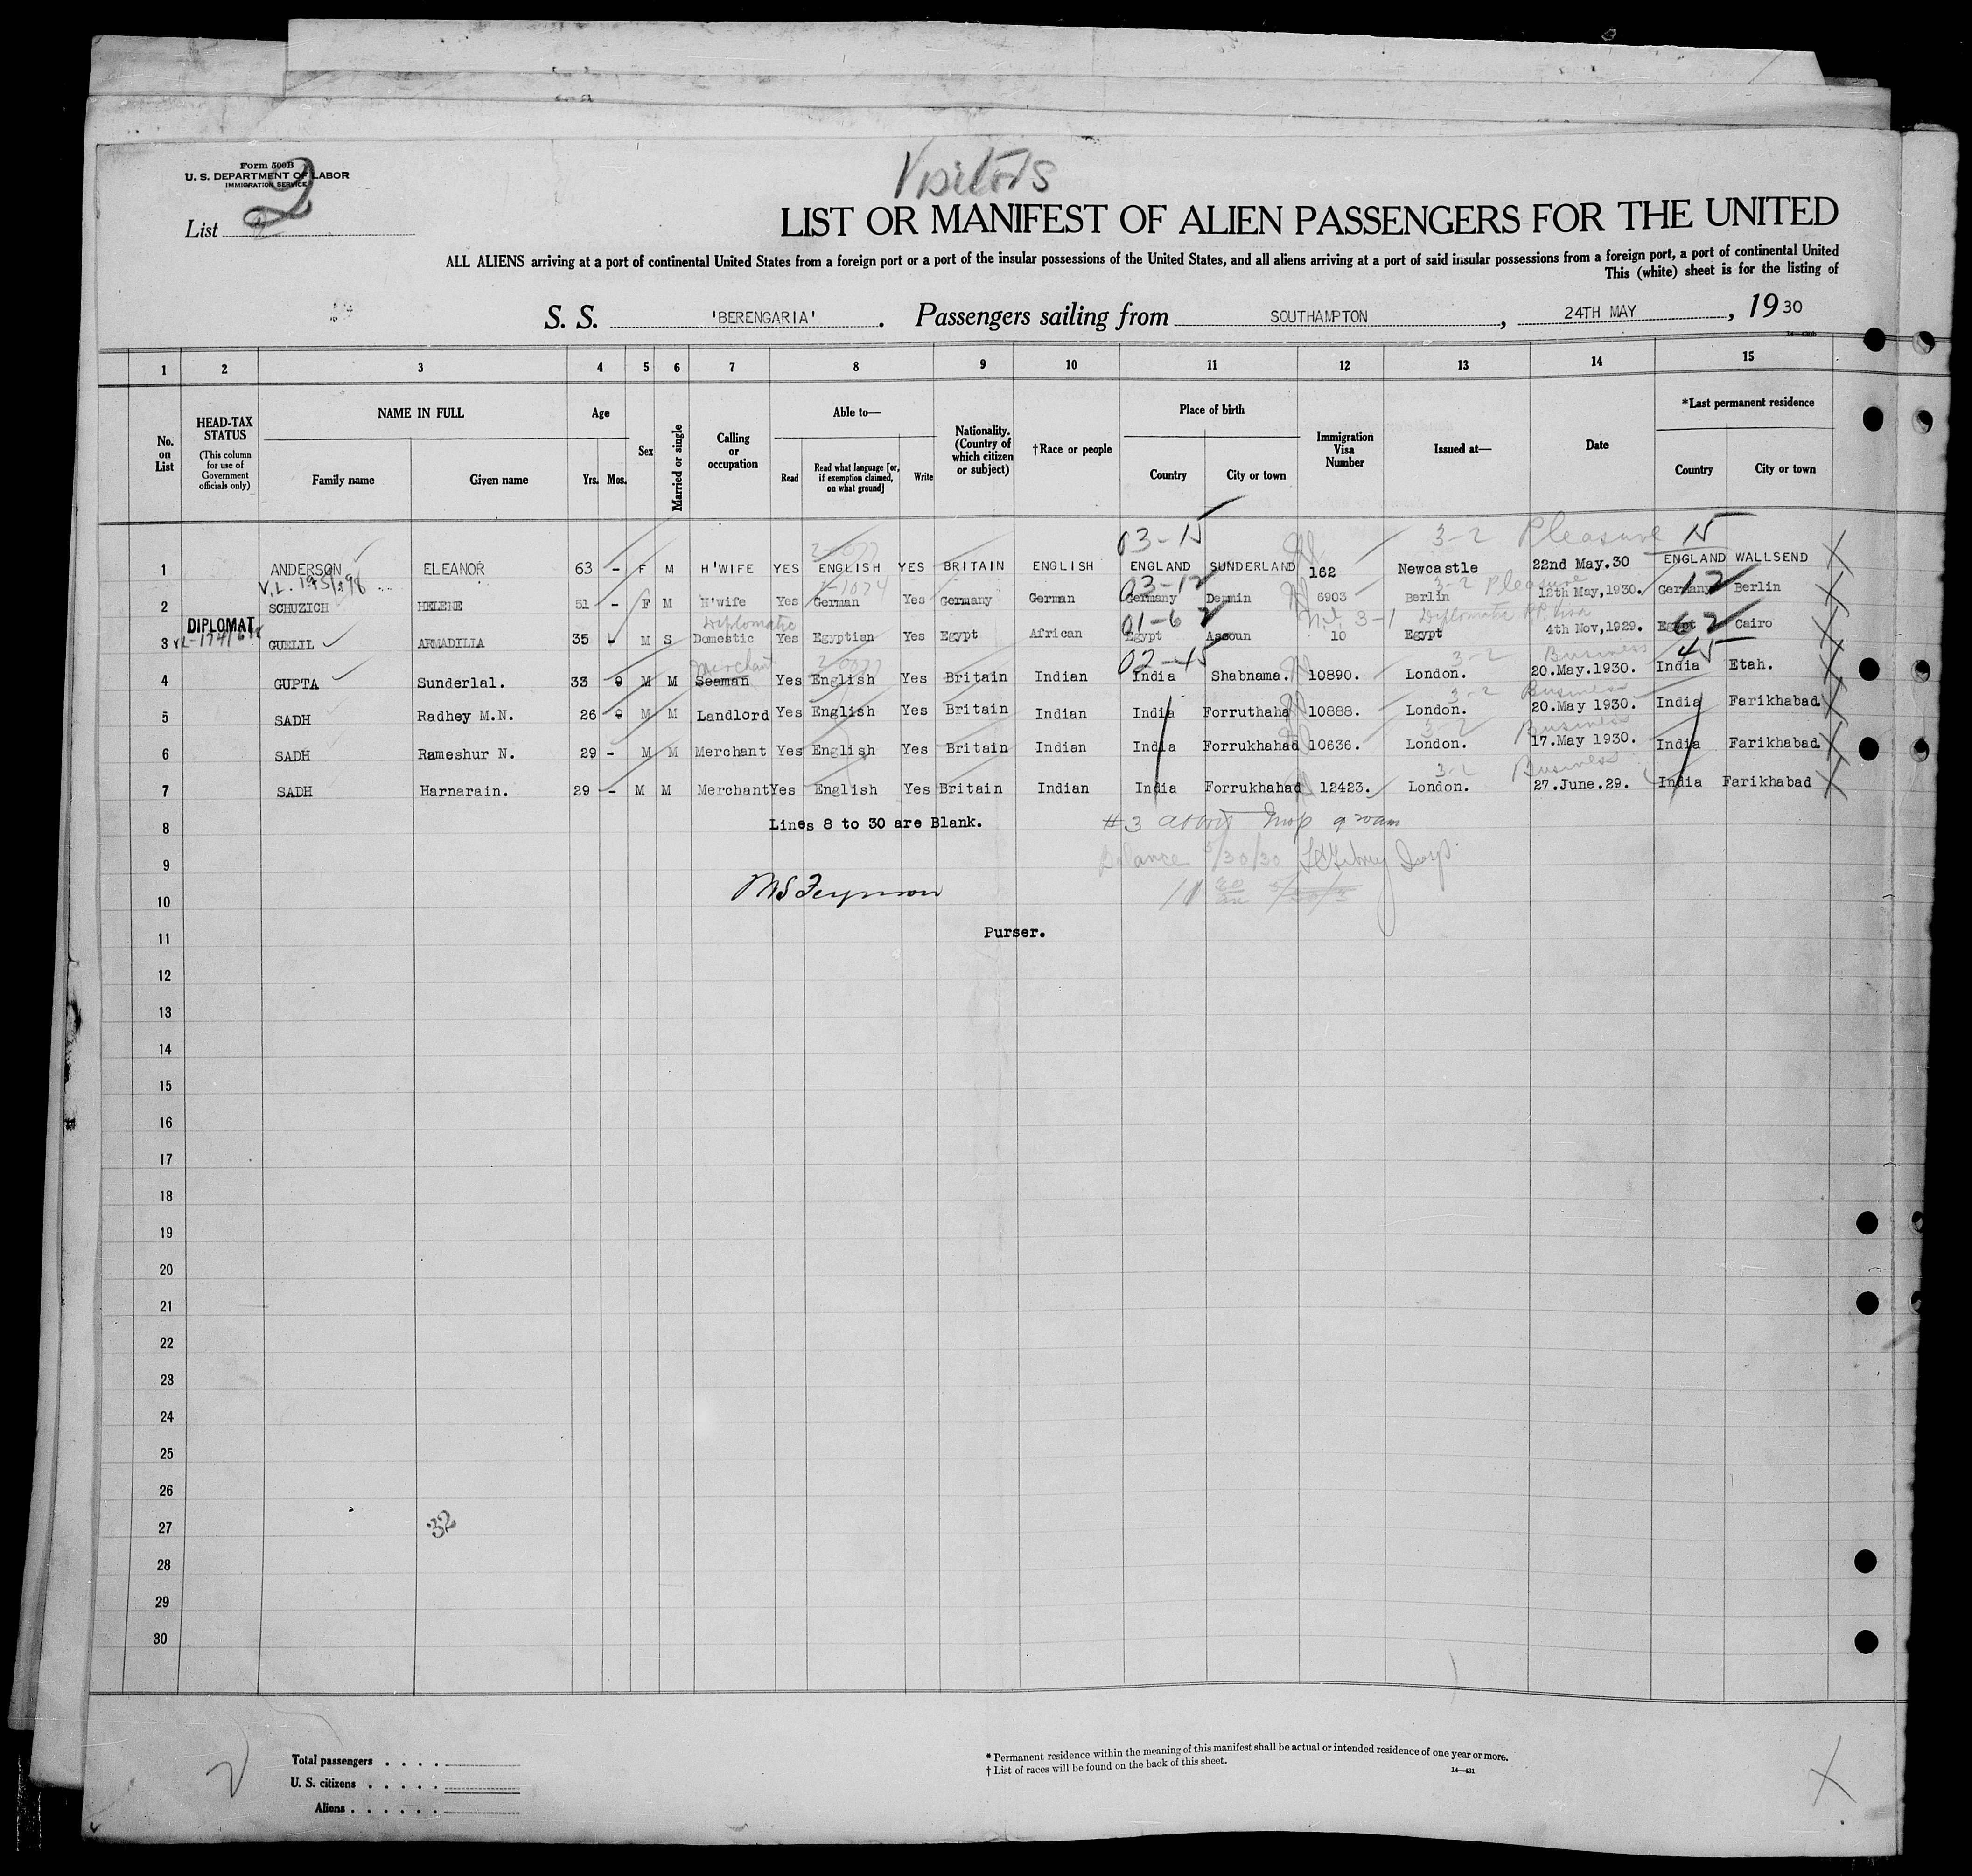 Form 500B
U. S. DEPARTMENT OF LABOR
IMMIGRATION SERVICE
Visitors
List 2
LIST OR MANIFEST OF ALIEN PASSENGERS FOR THE UNITED
ALL ALIENS arriving at a port of continental United States from a foreign port or a port of the insular possessions of the United States, and all aliens arriving at a port of said insular possessions from a foreign port, a port of continental United
This (white) sheet is for the listing of
S. S. 'BERENGARIA' . Passengers sailing from SOUTHAMPTON , 24TH MAY , 19 30
1 2 3 4 5 6 7 8 9 10 11 12 13 14 15
No. on List
HEAD-TAX STATUS (This column for use of Government officials only)
NAME IN FULL
Family name Given name
Age
Yrs. Mos.
Sex
Married or single
Calling or occupation
Able to—
Read Read what language [or, if exemption claimed, on what ground] Write
Nationality. (Country of which citizen or subject)
†Race or people
Place of birth
Country City or town
Immigration Visa Number
Issued at—
Date
*Last permanent residence
Country City or town
03-15 3-2 Pleasure 15
1 ANDERSON ELEANOR 63 - F M H'WIFE YES ENGLISH YES BRITAIN ENGLISH ENGLAND SUNDERLAND 162 Newcastle 22nd May.30 ENGLAND WALLSEND
03-12 3-2 Pleasure 12
2 SCHUZICH HELENE 51 - F M H'wife Yes German Yes Germany German Germany Demmin 6903 Berlin 12th May,1930. Germany Berlin
DIPLOMAT Diplomatic 01-62 3-1 Diplomatic P.P. Visa 62
3 GUELIL ARMADILIA 35 - M S Domestic Yes Egyptian Yes Egypt African Egypt Assoun 10 Egypt 4th Nov,1929. Egypt Cairo
Merchant 02-45 3-2 Business 45
4 GUPTA Sunderlal. 33 9 M M Seaman Yes English Yes Britain Indian India Shabnama. 10890. London. 20.May.1930. India Etah.
3-2 Business
5 SADH Radhey M.N. 26 9 M M Landlord Yes English Yes Britain Indian India Forruthaha 10888. London. 20.May 1930. India Farikhabad.
3-2 Business
6 SADH Rameshur N. 29 - M M Merchant Yes English Yes Britain Indian India Forrukhahad 10636. London. 17.May 1930. India Farikhabad.
3-2 Business
7 SADH Harnarain. 29 - M M Merchant Yes English Yes Britain Indian India Forrukhahad 12423. London. 27.June.29. India Farikhabad
8 Lines 8 to 30 are Blank. #3
9 Balance 5/30/30
10
11 Purser.
12
13
14
15
16
17
18
19
20
21
22
23
24
25
26
27 32
28
29
30
Total passengers . . . .
U. S. citizens . . . . .
Aliens . . . . . .
* Permanent residence within the meaning of this manifest shall be actual or intended residence of one year or more.
† List of races will be found on the back of this sheet.
14—431